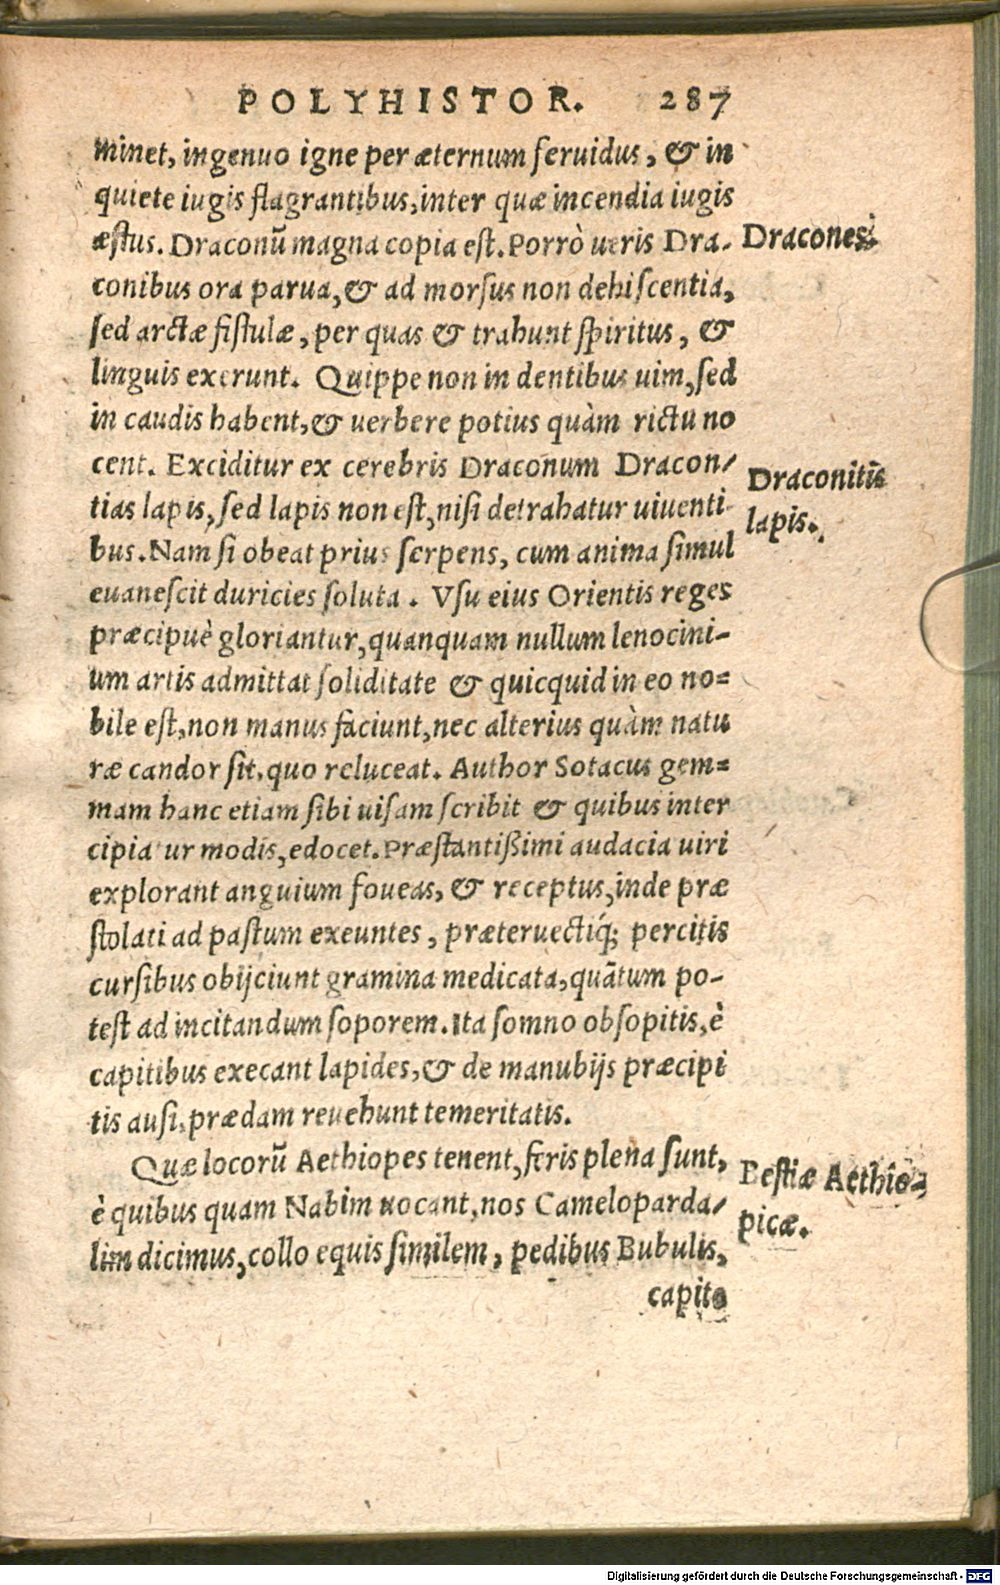 POLYHISTOR. 287
minet, ingenuo igne per æternum feruidus, & in
quiete iugis flagrantibus, inter quæ incendia iugis
æstus. Draconū magna copia est. Porrò ueris Dra-
Dracones.
conibus ora parua, & ad morsus non dehiscentia,
sed arctæ fistulæ, per quas & trahunt spiritus, &
linguis exerunt. Quippe non in dentibus uim, sed
in caudis habent, & uerbere potius quàm rictu no
cent. Exciditur ex cerebris Draconum Dracon-
Draconitis
lapis.
tias lapis, sed lapis non est, nisi detrahatur uiuenti
bus. Nam si obeat prius serpens, cum anima simul
euanescit duricies soluta. Vsu eius Orientis reges
præcipuè gloriantur, quanquam nullum lenocini-
um artis admittat soliditate & quicquid in eo no-
bile est, non manus faciunt, nec alterius quàm natu
ræ candor sit, quo reluceat. Author Sotacus gem-
mam hanc etiam sibi uisam scribit & quibus inter
cipiatur modis, edocet. Præstantißimi audacia uiri
explorant anguium foueas, & receptus, inde præ
stolati ad pastum exeuntes, præteruectiq́; percitis
cursibus obijciunt gramina medicata, quātum po-
test ad incitandum soporem. Ita somno obsopitis, è
capitibus execant lapides, & de manubijs præcipi
tis ausi, prædam reuehunt temeritatis.
Quæ locorū Aethiopes tenent, feris plena sunt,
Bestiæ Aethio-
picæ.
è quibus quam Nabim uocant, nos Cameloparda-
lim dicimus, collo equis similem, pedibus Bubulis,
capite
Digitalisierung gefördert durch die Deutsche Forschungsgemeinschaft - DFG